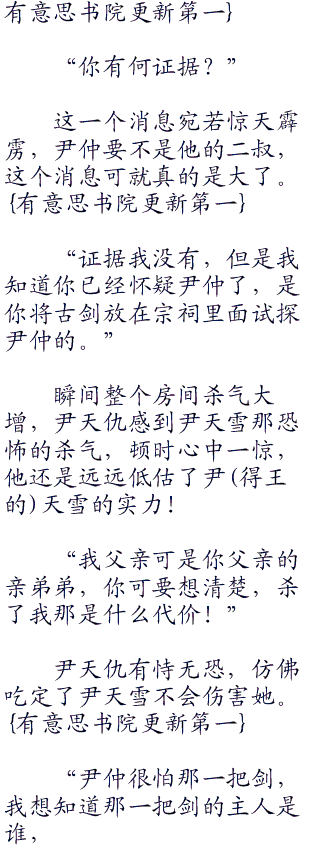 有意思书院更新第一}
“你有何证据？”
这一个消息宛若惊天霹
雳，尹仲要不是他的二叔，
这个消息可就真的是大了。
{有意思书院更新第一}
“证据我没有，但是我
知道你已经怀疑尹仲了，是
你将古剑放在宗祠里面试探
尹仲的。”
瞬间整个房间杀气大
增，尹天仇感到尹天雪那恐
怖的杀气，顿时心中一惊，
他还是远远低估了尹(得王
的)天雪的实力！
“我父亲可是你父亲的
亲弟弟，你可要想清楚，杀
了我那是什么代价！”
尹天仇有恃无恐，仿佛
吃定了尹天雪不会伤害她。
{有意思书院更新第一}
“尹仲很怕那一把剑，
我想知道那一把剑的主人是
谁，